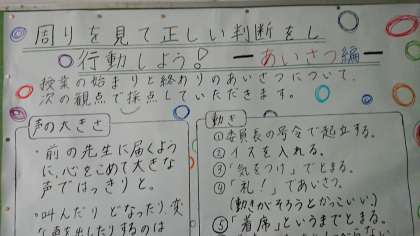 周りを見て正しい判断をし
行動しよう! ーあいさつ編ー
授業の始まりと終わりのあいさつについて、
次の観点で採点していただきます。
声の大きさ
・前の先生に届くよう
に、心をこめて大きな
声ではっきりと。
・叫んだり どなったり、変
な声を出したりするのは
動き
①委員長の号令で起立する。
②イスを入れる。
③「気をつけ」でとまる。
④「礼!」であいさつ。
(動きがそろうとかっこいい)
⑤「着席」というまでとまる。